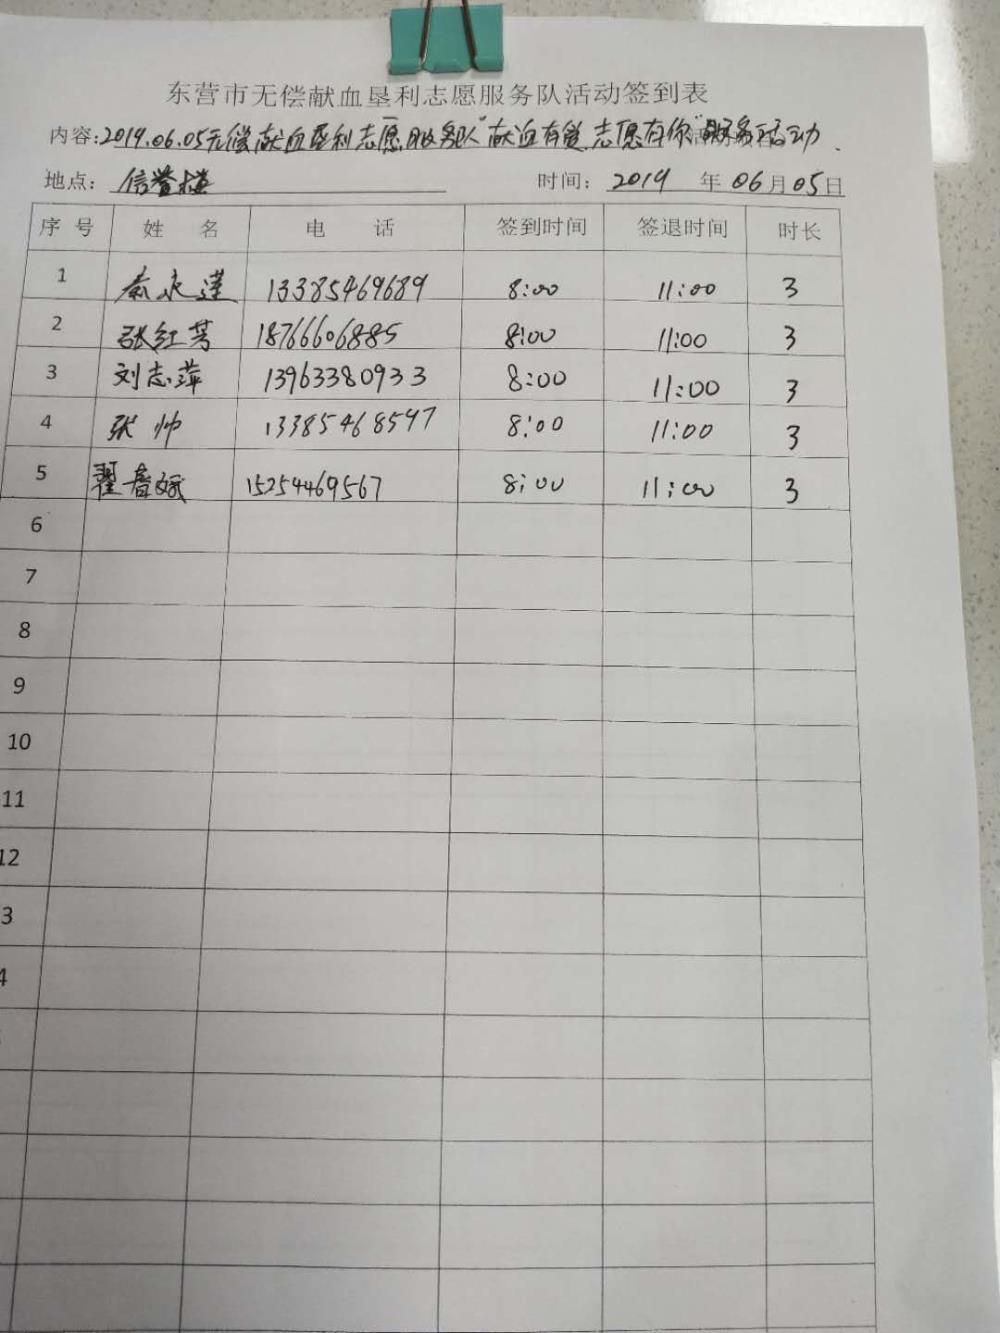 东营市无偿献血垦利志愿服务队活动签到表
内容:2019.06.05无偿献血垦利志愿服务队"献血有爱 志愿有你"服务活动.
地点: 信誉楼 时间: 2019 年 06 月 05 日
序 号 姓 名 电 话 签到时间 签退时间 时长
1 秦永莲 13385469689 8:00 11:00 3
2 张红芳 18766606885 8:00 11:00 3
3 刘志萍 13963380933 8:00 11:00 3
4 张帅 13385468597 8:00 11:00 3
5 翟 15254469567 8:00 11:00 3
6
7
8
9
10
11
12
3
4